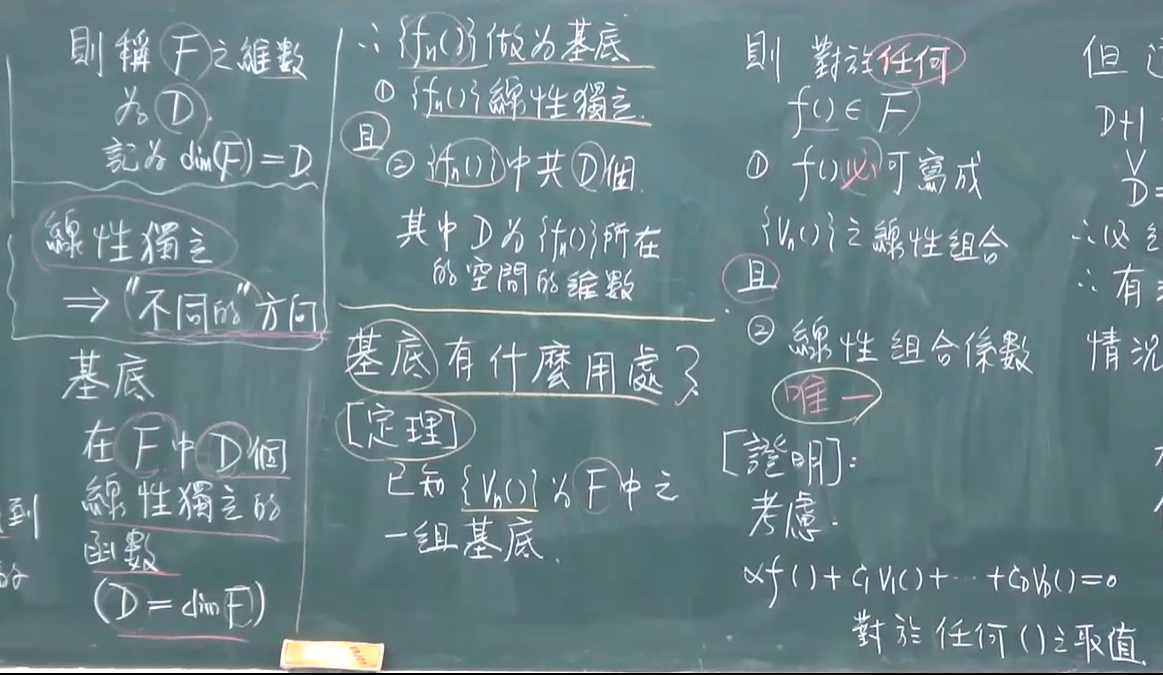 則稱 F 之維數
為 D.
記為 dim(F) = D.
線性獨立
⇒ "不同的" 方向
基底
在 F 中 D 個
線性獨立的
函數
(D = dim F)
到
∴ {fn()} 做為基底
① {fn()} 線性獨立.
且
② {fn()} 中共 D 個.
其中 D 為 {fn()} 所在
的空間的維數
基底有什麼用處?
[定理]
已知 {Vn()} 為 F 中之
一組基底.
則 對於任何
f() ∈ F
① f() 必可寫成
{Vn()} 之線性組合
且
② 線性組合係數
唯一
[證明]:
考慮.
αf() + C₁V₁() + ⋯ + C_D V_D() = 0
對於任何 () 之取值.
但
D+1
V
D =
∴必
∴有
情況